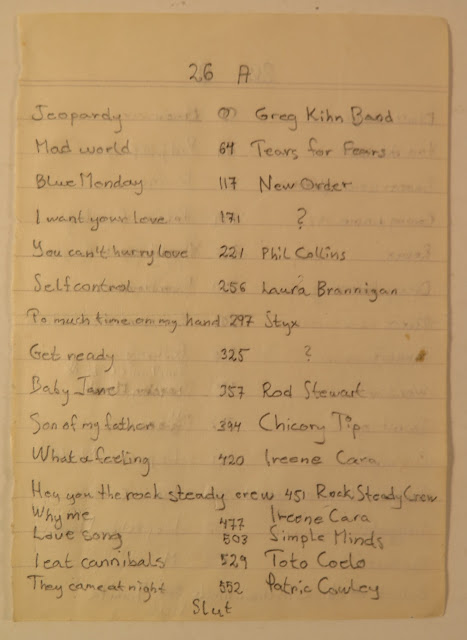 26 A
Jeopardy 0 Greg Kihn Band
Mad world 64 Tears for Fears
Blue Monday 117 New Order
I want your love 171 ?
You can't hurry love 221 Phil Collins
Selfcontrol 256 Laura Brannigan
To much time on my hand 297 Styx
Get ready 325 ?
Baby Jane 357 Rod Stewart
Son of my father 394 Chicory Tip
What a feeling 420 Ireene Cara
Hey you the rock steady crew 451 Rock Steady Crew
Why me 477 Ireene Cara
Love song 503 Simple Minds
I eat cannibals 529 Toto Coelo
They came at night 552 Patric Cowley
Slut